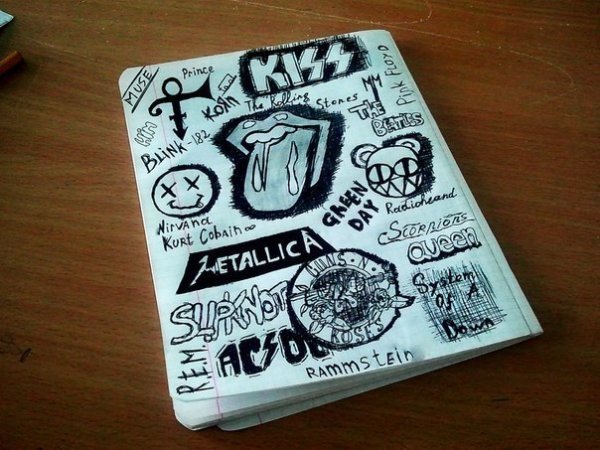 MUSE
Prince
KISS
PINK FLOYD
KoRn
The Rolling Stones
MM
THE
BEATLES
HIM
BLiNK-182
GREEN
DAY
Radioheand
NirvaNa
Kurt Cobain
Scorpions
Queen
METALLICA
GUNS N'
ROSES
System
Of A
Down
SLIPKNOT
R.E.M.
AC/DC
RAMMStEiN